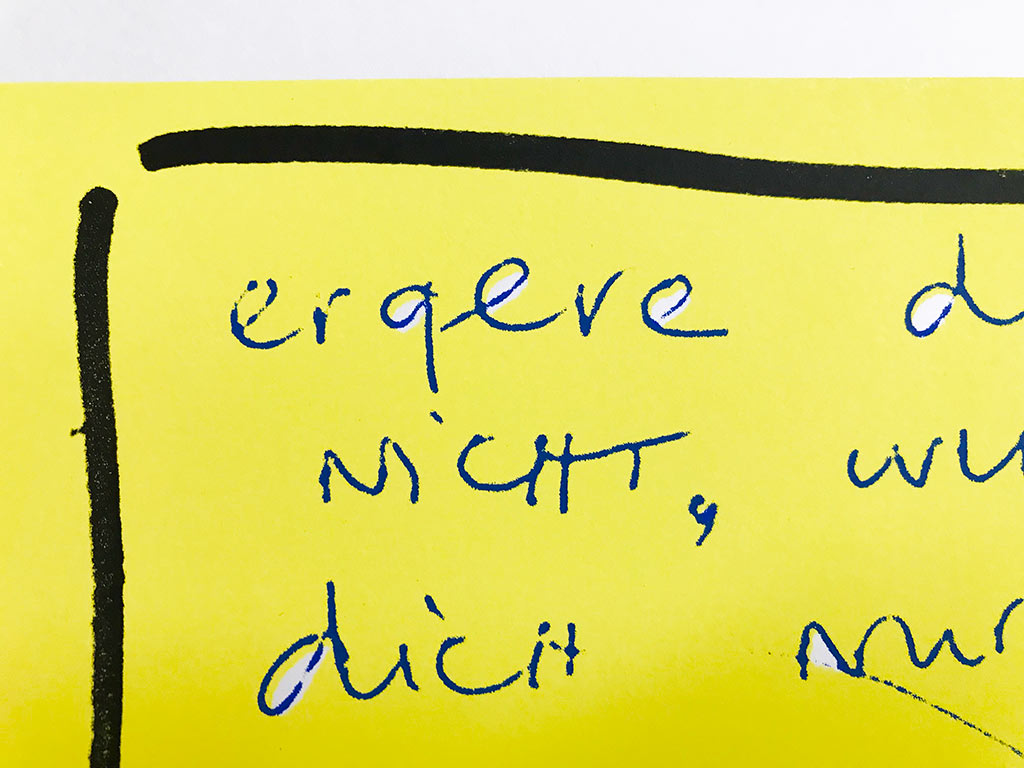 ergere d
NICHT, wu
dich nur